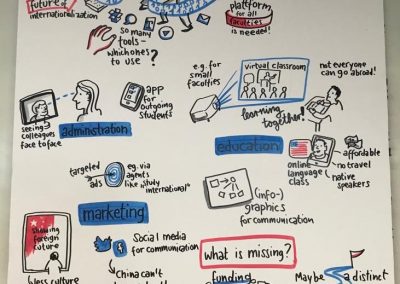 future of
internationalization
so many
tools -
which ones
to use?
platform
for all
faculties
is needed!
seeing
colleagues
face to face
administration
app
for
outgoing
students
e.g. for
small
faculties
virtual classroom
learning
together!
not everyone
can go abroad!
education
online
language
class
affordable
no travel
native
speakers
targeted
ads
e.g. via
agents
like "study
international"
marketing
(info-)
graphics
for communication
showing
foreign
future
Social media
for communication
f
what is missing?
China can't
less culture
funding
Maybe
a distinct